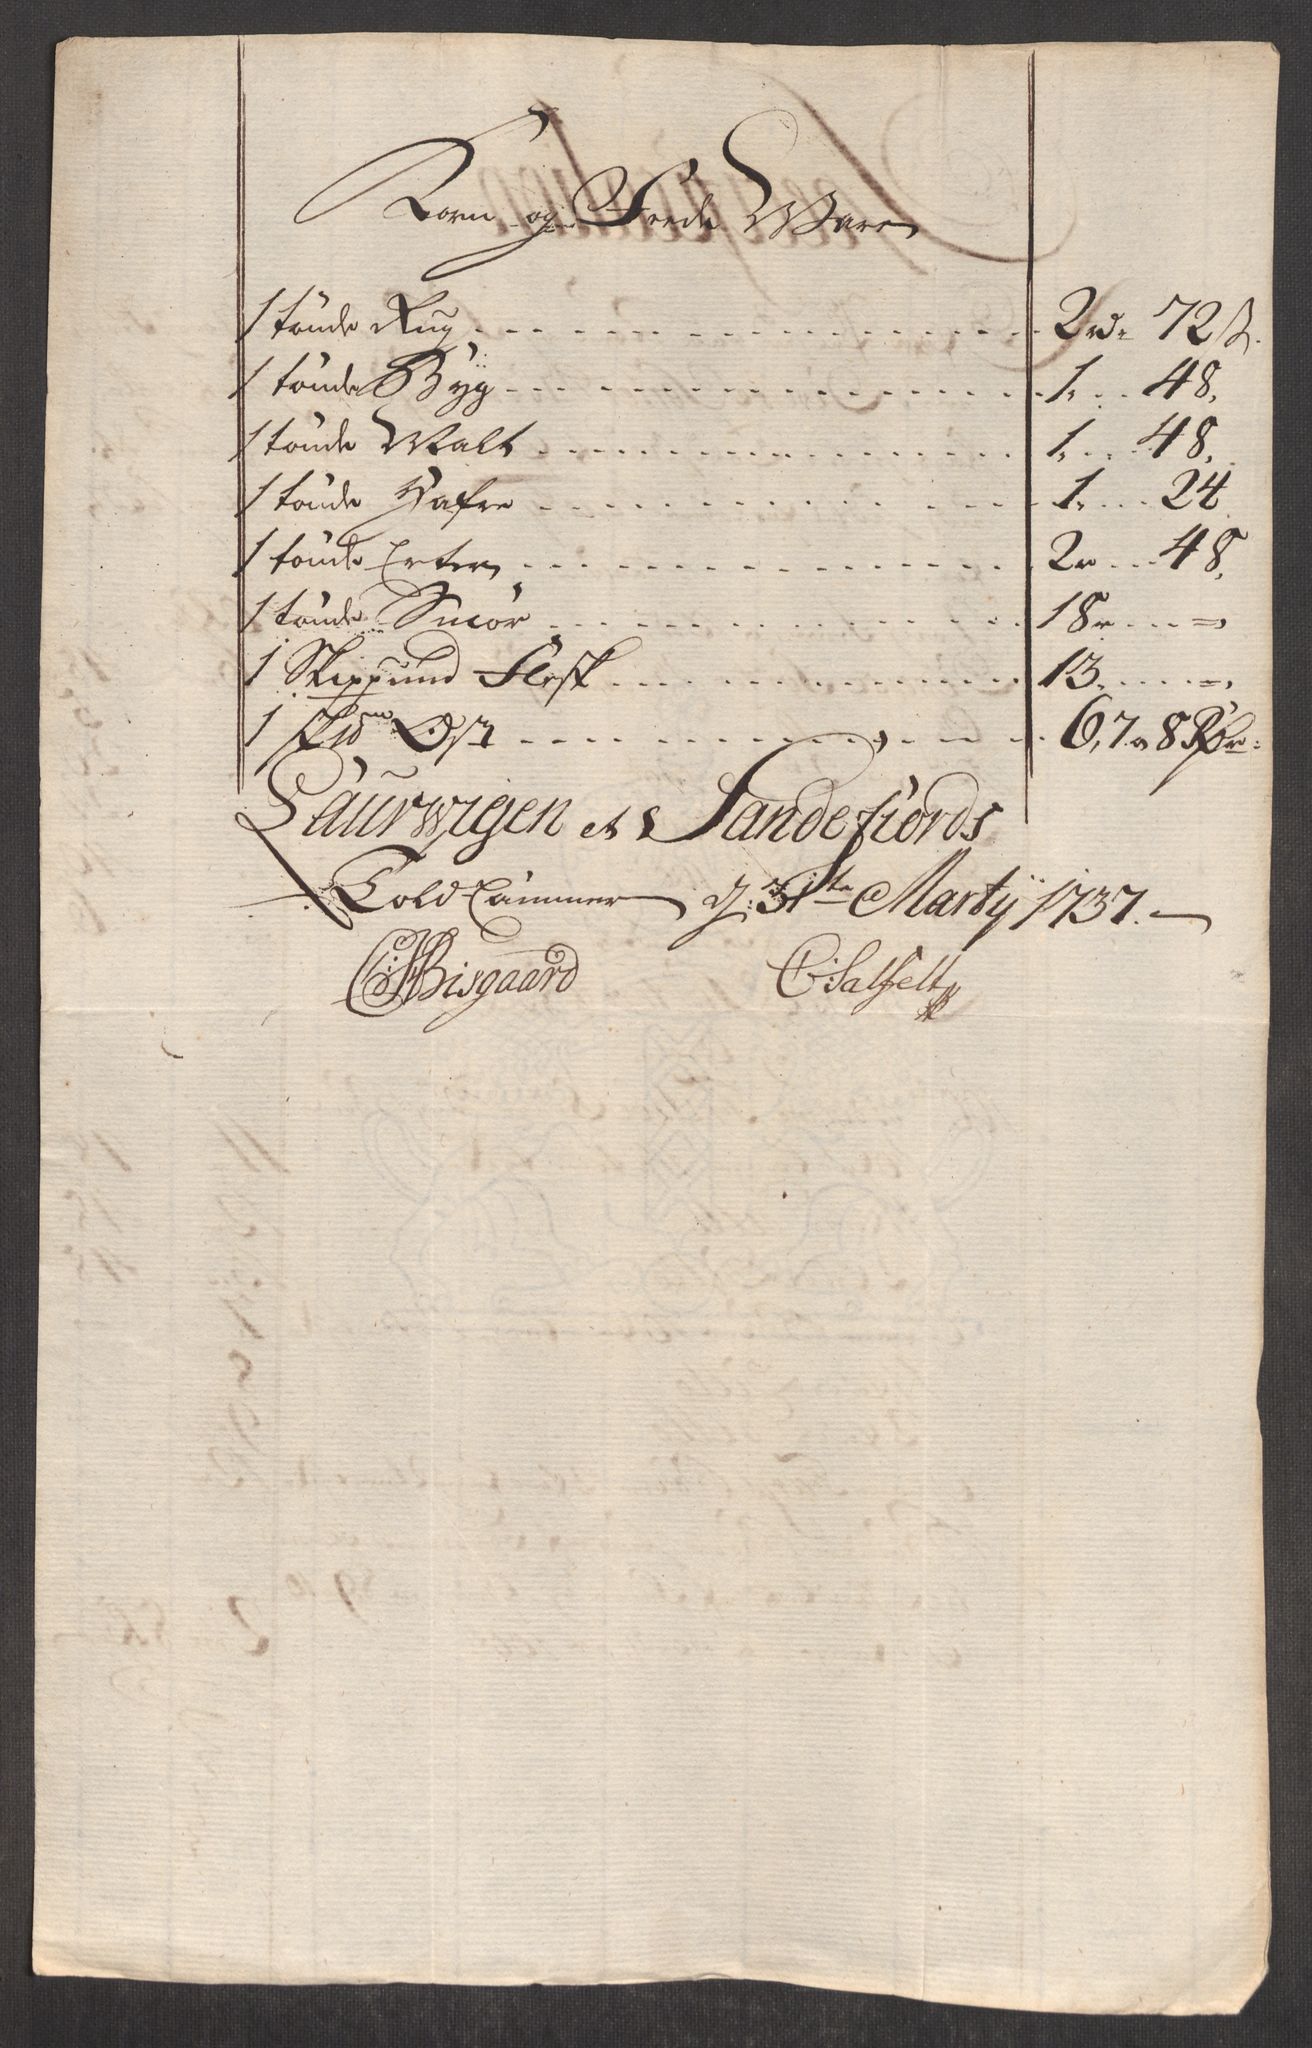 Korn og Feede Ware
1 tønde Rug . . . . 2 rd. 72 ß.
1 tønde Byg . . . . 1. . . 48.
1 tønde Malt . . . . 1. . . 48.
1 tønde Hafre . . . . 1. . . 24.
1 tønde Erter . . . . 2 . . . 48.
1 tønde Smør . . . . 18 . . . =
1 Skippund Flesk . . . . 13. . . . =
1 dito Ost . . . . 6, 7 a 8
Laurwigen et Sandefiords
Told Cammer d: 31te Martij 1737.
Bisgaard C: Salfelt